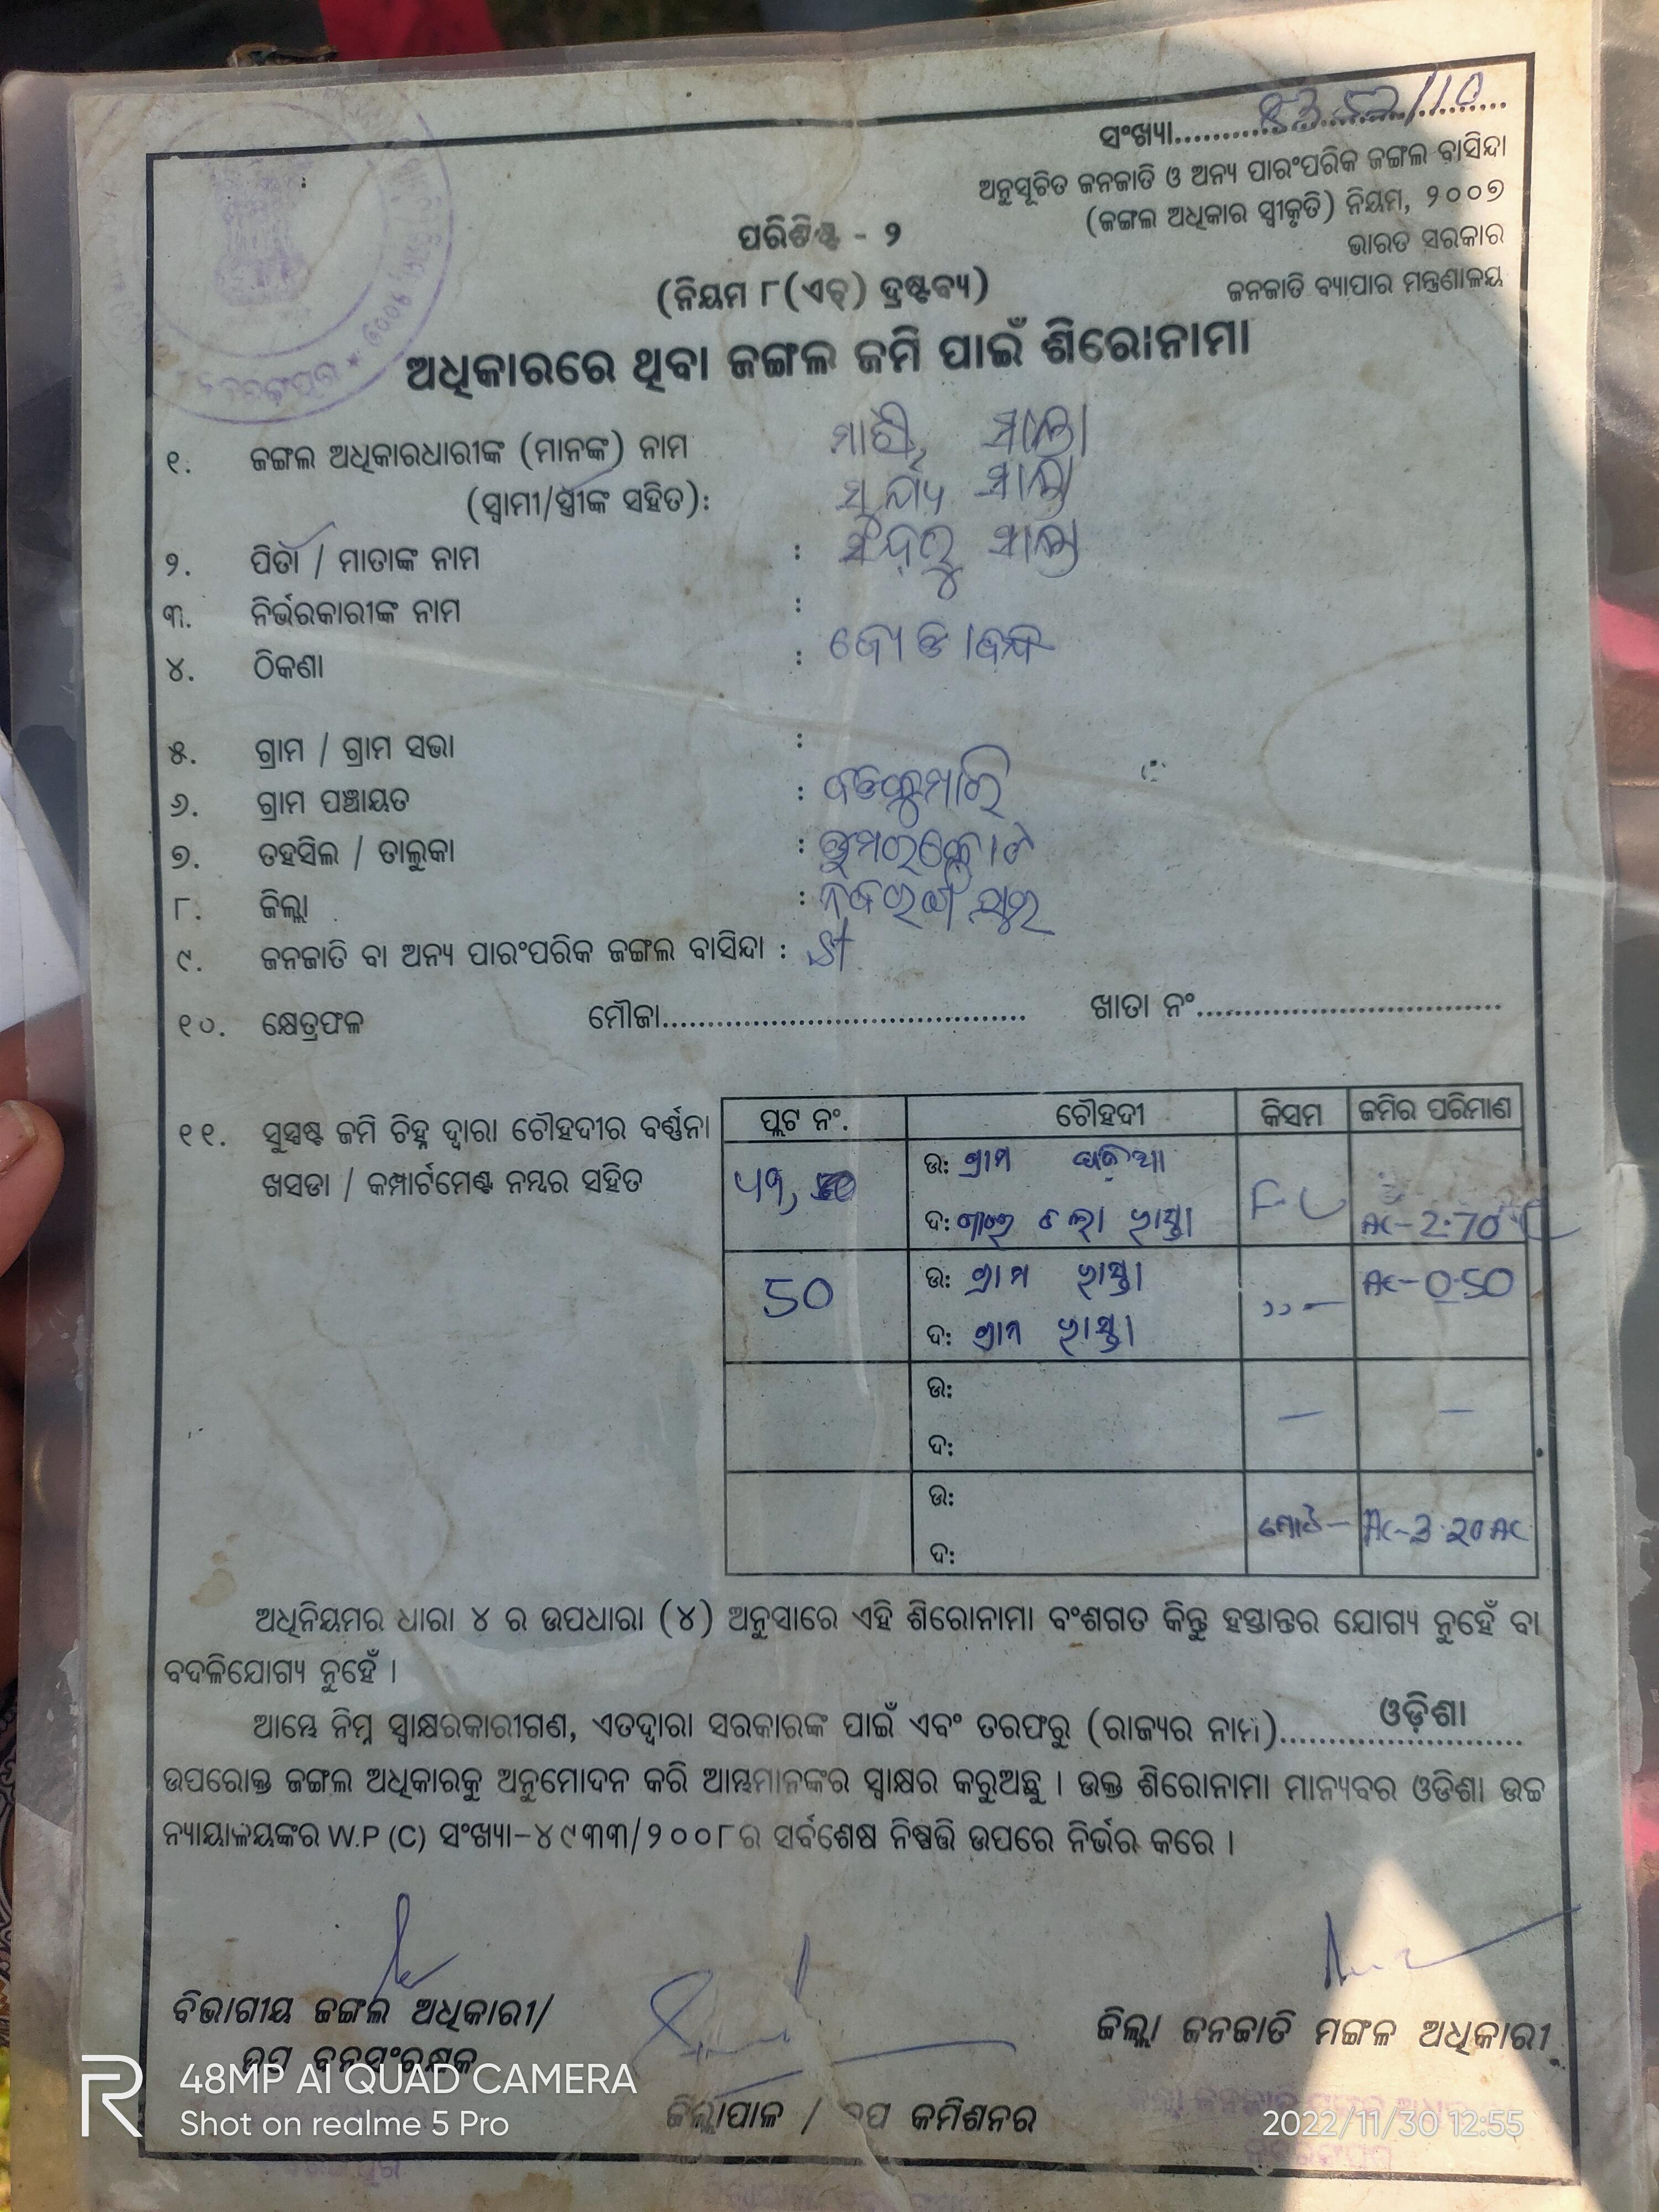 ସଂଖ୍ୟା
ଅନୁସୂଚିତ ଜନଜାତି ଓ ଅନ୍ୟ ପାରଂପରିକ ଜଙ୍ଗଲ ବାସିନ୍ଦା
(ଜଙ୍ଗଲ ଅଧିକାର ସ୍ୱୀକୃତି) ନିୟମ, ୨୦୦୭
ଭାରତ ସରକାର
ଜନଜାତି ବ୍ୟାପାର ମନ୍ତ୍ରଣାଳୟ
ପରିଶିଷ୍ଟ - ୨
(ନିୟମ ୮(ଏଚ୍) ଦ୍ରଷ୍ଟବ୍ୟ)
ଅଧିକାରରେ ଥିବା ଜଙ୍ଗଲ ଜମି ପାଇଁ ଶିରୋନାମା
୧. ଜଙ୍ଗଲ ଅଧିକାରଧାରୀଙ୍କ (ମାନଙ୍କ) ନାମ
(ସ୍ୱାମୀ/ସ୍ତ୍ରୀଙ୍କ ସହିତ):
୨. ପିତା / ମାତାଙ୍କ ନାମ :
୩. ନିର୍ଭରକାରୀଙ୍କ ନାମ :
୪. ଠିକଣା :
୫. ଗ୍ରାମ / ଗ୍ରାମ ସଭା :
୬. ଗ୍ରାମ ପଞ୍ଚାୟତ : ବଡକୁମାରି
୭. ତହସିଲ / ତାଲୁକା : ଡୁମରକୋଟ
୮. ଜିଲ୍ଲା : ନବରଙ୍ଗପୁର
୯. ଜନଜାତି ବା ଅନ୍ୟ ପାରଂପରିକ ଜଙ୍ଗଲ ବାସିନ୍ଦା : St
୧୦. କ୍ଷେତ୍ରଫଳ ମୌଜା........................................ ଖାତା ନଂ..................................
୧୧. ସୁସ୍ପଷ୍ଟ ଜମି ଚିହ୍ନ ଦ୍ୱାରା ଚୌହଦୀର ବର୍ଣ୍ଣନା
ଖସଡା / କମ୍ପାର୍ଟମେଣ୍ଟ ନମ୍ବର ସହିତ
ପ୍ଲଟ ନଂ. ଚୌହଦୀ କିସମ ଜମିର ପରିମାଣ
ଉ: ଗ୍ରାମ
ଦ: ରାସ୍ତା AC-2.70
50 ଉ: ଗ୍ରାମ ରାସ୍ତା ,, - AC-0.50
ଦ: ଗ୍ରାମ ରାସ୍ତା
ଉ: — —
ଦ:
ଉ: ମୋଟ- AC-3.20 AC
ଦ:
ଅଧିନିୟମର ଧାରା ୪ ର ଉପଧାରା (୪) ଅନୁସାରେ ଏହି ଶିରୋନାମା ବଂଶଗତ କିନ୍ତୁ ହସ୍ତାନ୍ତର ଯୋଗ୍ୟ ନୁହେଁ ବା
ବଦଳିଯୋଗ୍ୟ ନୁହେଁ ।
ଆମ୍ଭେ ନିମ୍ନ ସ୍ୱାକ୍ଷରକାରୀଗଣ, ଏତଦ୍ୱାରା ସରକାରଙ୍କ ପାଇଁ ଏବଂ ତରଫରୁ (ରାଜ୍ୟର ନାମ) ଓଡ଼ିଶା
ଉପରୋକ୍ତ ଜଙ୍ଗଲ ଅଧିକାରକୁ ଅନୁମୋଦନ କରି ଆମ୍ଭମାନଙ୍କର ସ୍ୱାକ୍ଷର କରୁଅଛୁ । ଉକ୍ତ ଶିରୋନାମା ମାନ୍ୟବର ଓଡିଶା ଉଚ୍ଚ
ନ୍ୟାୟାଳୟଙ୍କର W.P (C) ସଂଖ୍ୟା-୪୯୩୩/୨୦୦୮ର ସର୍ବଶେଷ ନିଷ୍ପତ୍ତି ଉପରେ ନିର୍ଭର କରେ ।
ବିଭାଗୀୟ ଜଙ୍ଗଲ ଅଧିକାରୀ/
ଉପ ବନସଂରକ୍ଷକ
ଜିଲ୍ଲା ଜନଜାତି ମଙ୍ଗଳ ଅଧିକାରୀ
ଜିଲ୍ଲାପାଳ / ଉପ କମିଶନର
48MP AI QUAD CAMERA
Shot on realme 5 Pro
2022/11/30 12:55